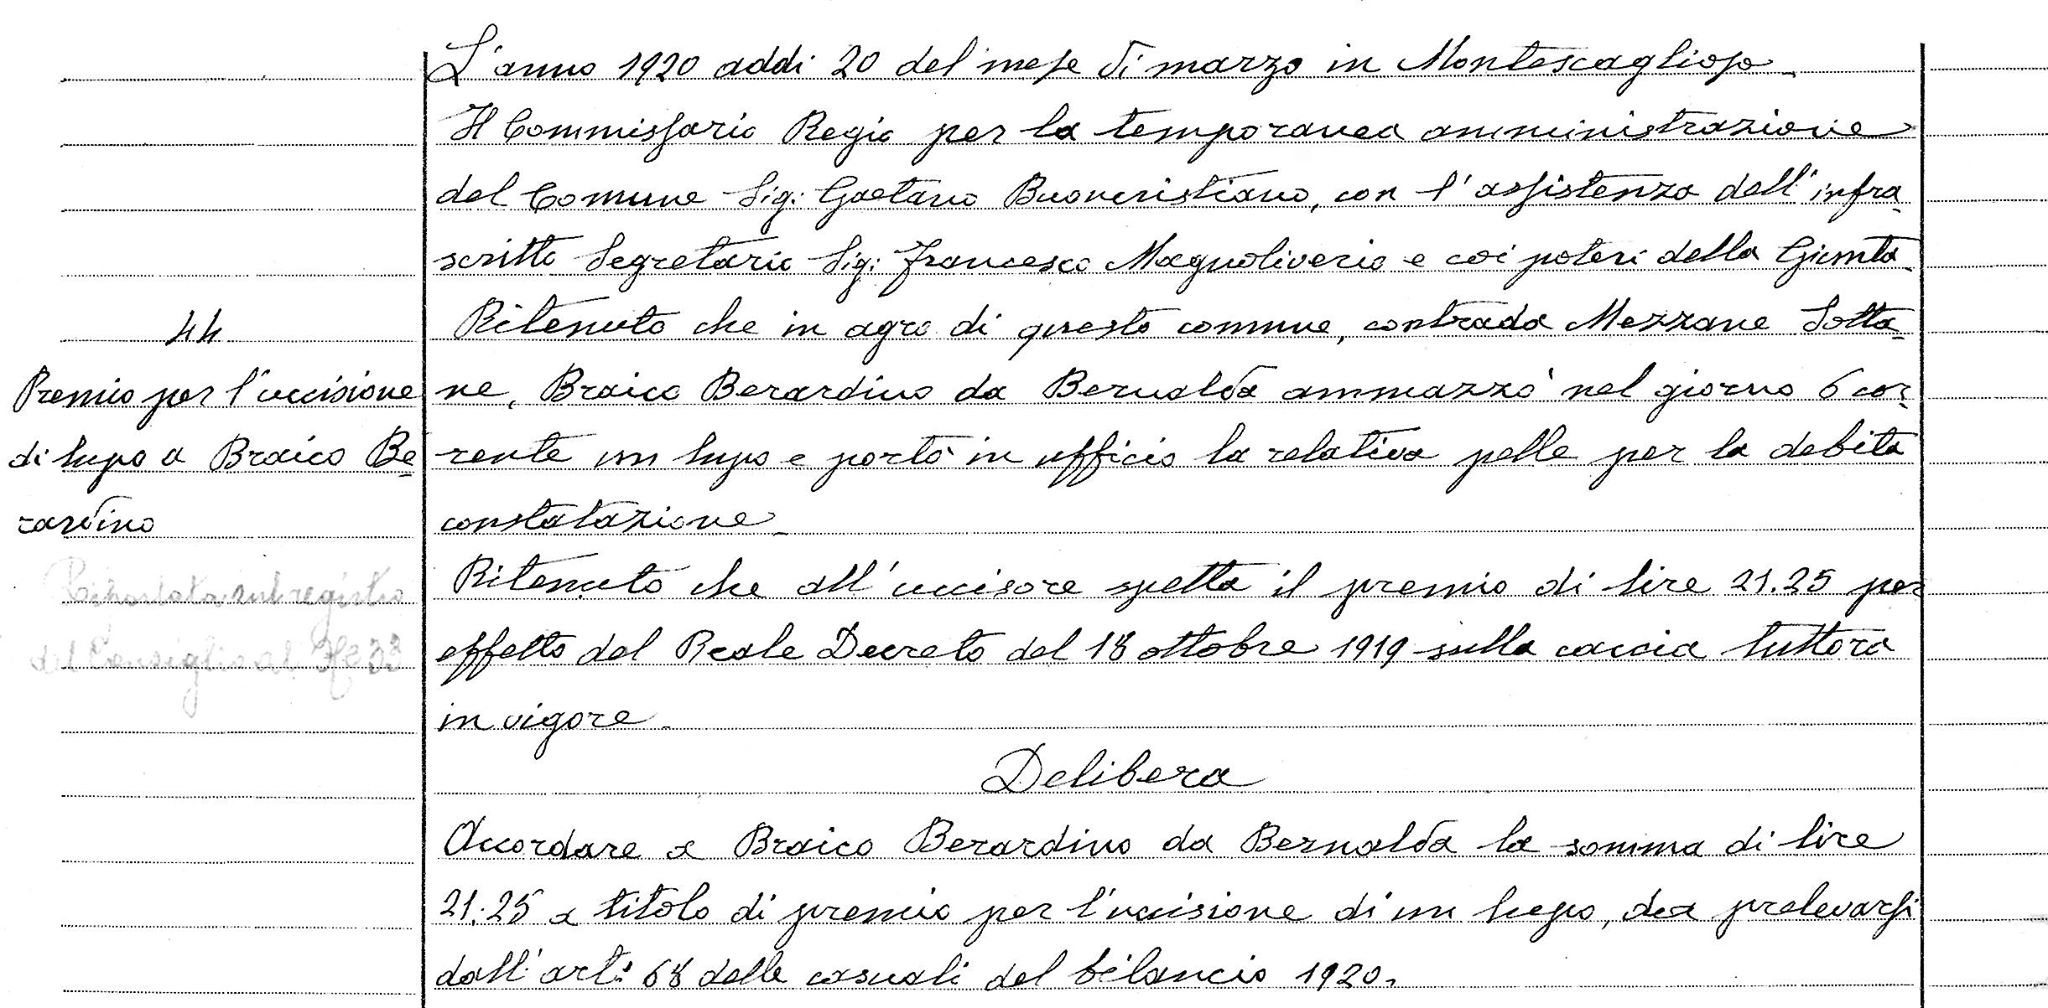 L'anno 1920 addi 20 del mese di marzo in Montescaglioso
Il Commissario Regio per la temporanea amministrazione
del Comune Sig. Gaetano Buoncristiano, con l'assistenza dell'infra-
scritto Segretario Sig. Francesco Magnoliverio e coi poteri della Giunta.
44
Premio per l'uccisione
di lupo a Braico Be-
rardino
Riportata sul registro
del Consiglio al N° 33
Ritenuto che in agro di questo comune, contrada Mezzane Sotta-
ne, Braico Berardino da Bernalda ammazzò nel giorno 6 cor-
rente un lupo e portò in ufficio la relativa pelle per la debita
constatazione
Ritenuto che all'uccisore spetta il premio di lire 21.25 per
effetto del Reale Decreto del 18 ottobre 1919 sulla caccia tuttora
in vigore
Delibera
Accordare a Braico Berardino da Bernalda la somma di lire
21.25 a titolo di premio per l'uccisione di un lupo, da prelevarsi
dall'art. 68 delle casuali del bilancio 1920.